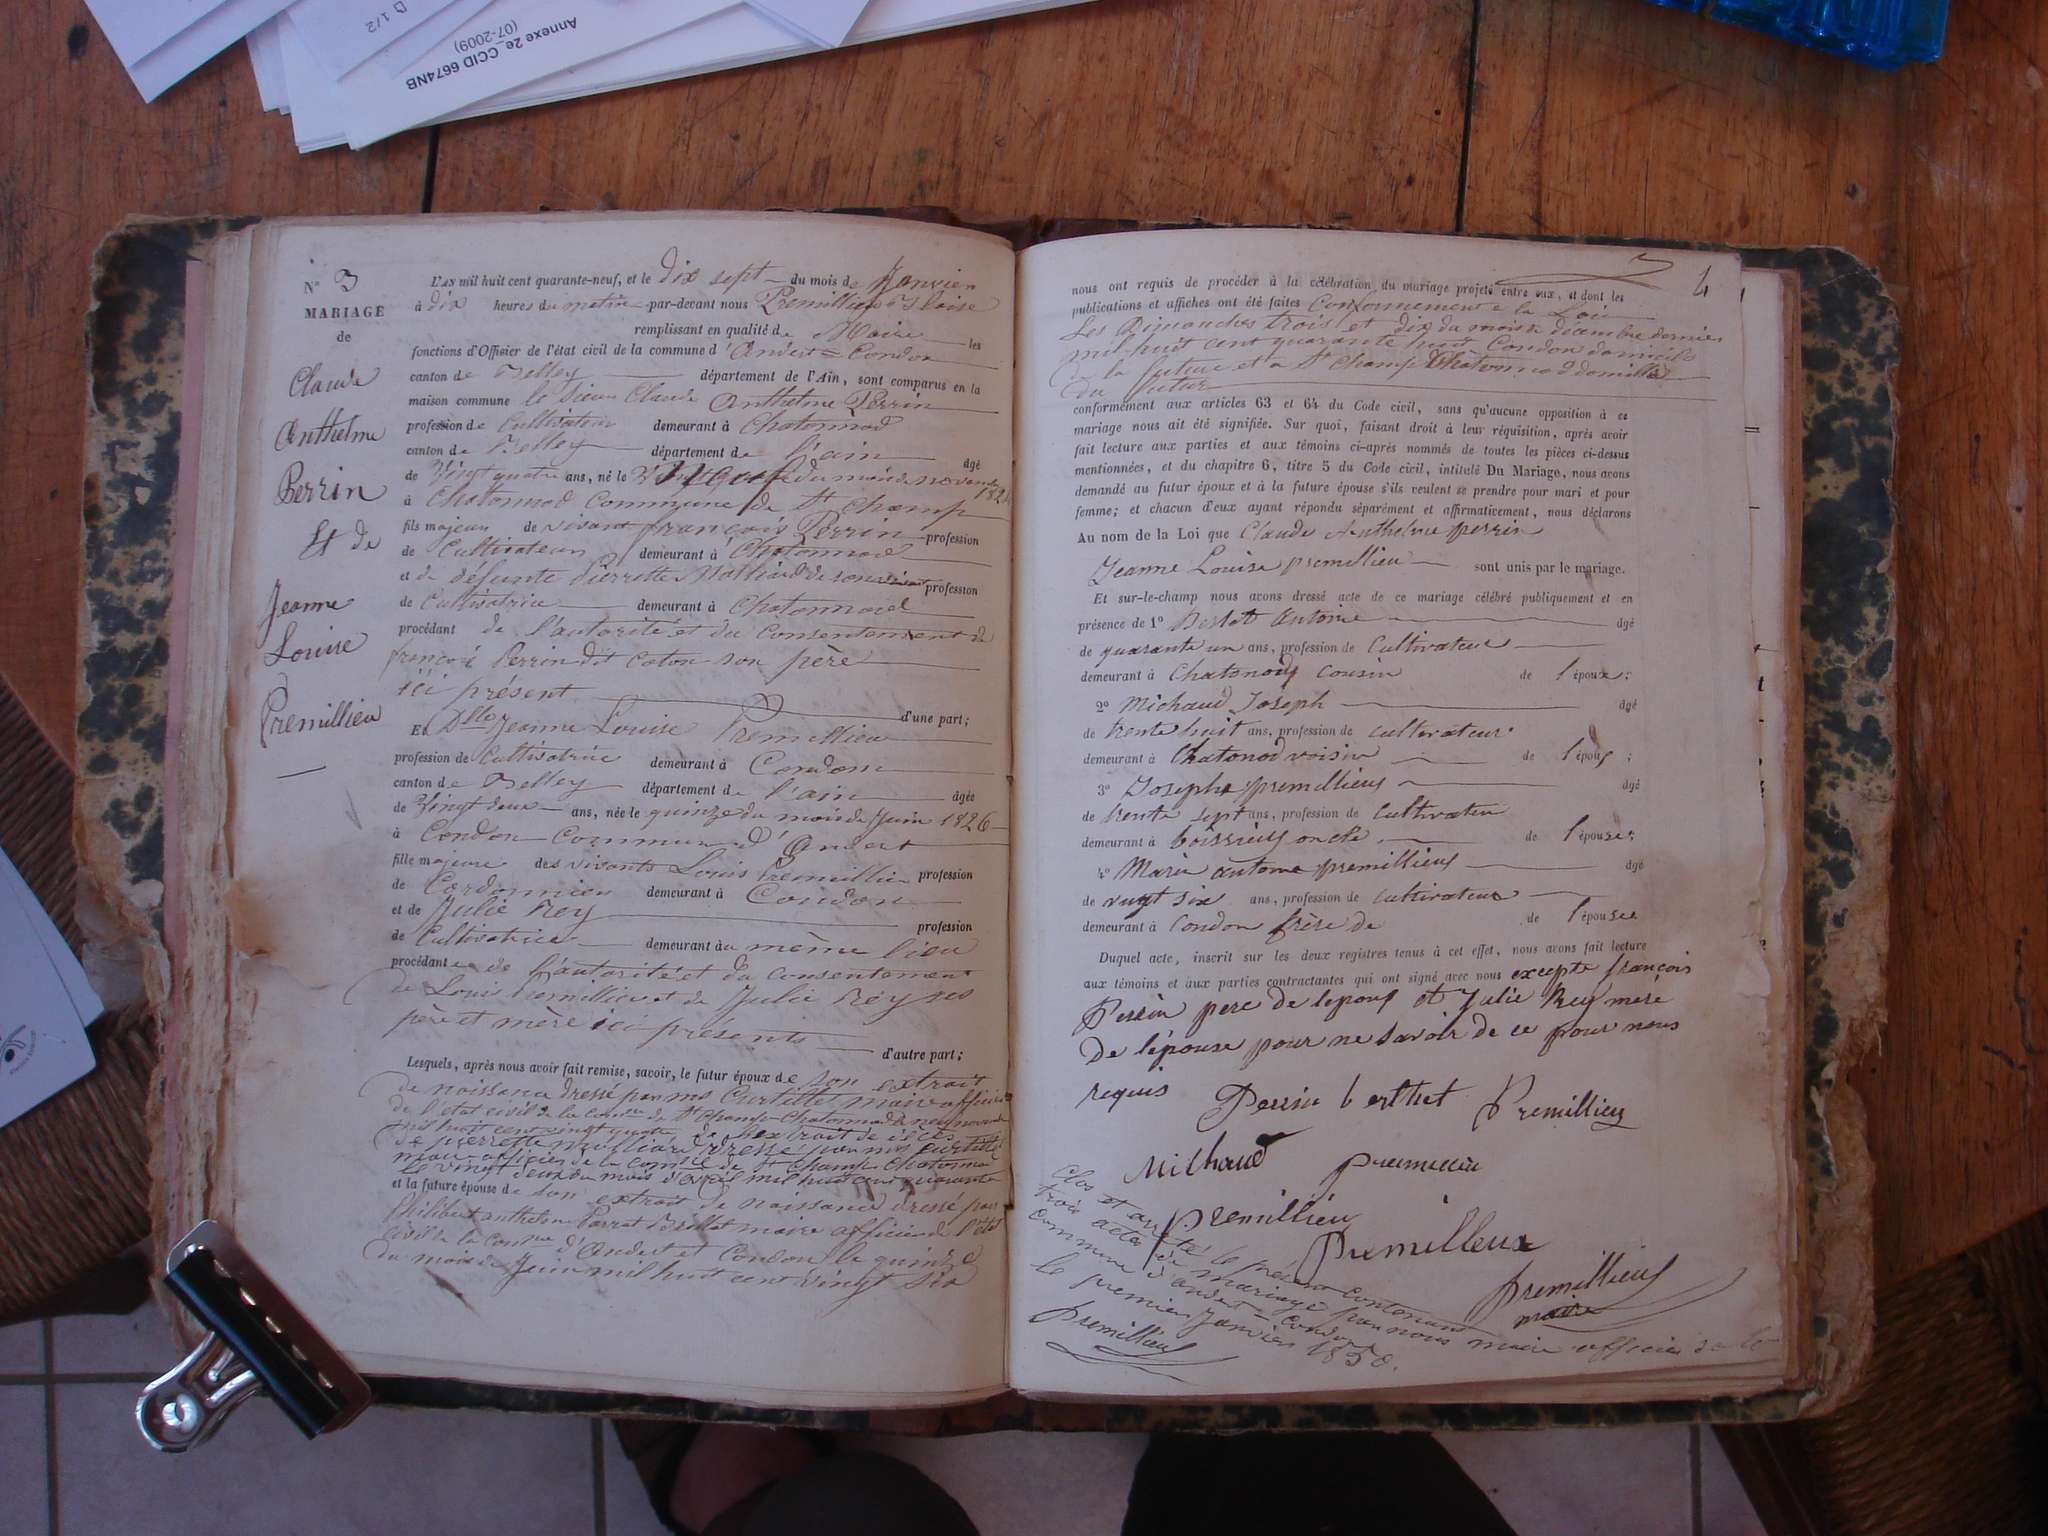 Annexe 2e_CCID 6674NB
(07-2009)
D 1/2
N° 3
MARIAGE
de
Claude
Anthelme
Perrin
Et de
Jeanne
Louise
Premillieu
L'AN mil huit cent quarante-neuf, et le dix sept du mois de Janvier
à dix heures du matin par-devant nous Premillieu
remplissant en qualité de Maire les
fonctions d'Officier de l'état civil de la commune d'Andert=Condon
canton de Belley département de l'Ain, sont comparus en la
maison commune le sieur Claude Anthelme Perrin
profession de Cultivateur demeurant à Chatonnod
canton de Belley département de l'ain âgé
de vingt quatre ans, né le du mois de novembre 1824
à Chatonnod Commune de St Champ
fils majeur de vivant françois Perrin profession
de Cultivateur demeurant à Chatonnod
et de défunte Pierrette de son vivant profession
de Cultivatrice demeurant à Chatonnod
procédant de l'autorité et du Consentement de
françois Perrin dit Caton son père
ici présent
d'une part;
Et Dlle Jeanne Louise Premillieu
profession de Cultivatrice demeurant à Condon
canton de Belley département de l'ain âgée
de vingt deux ans, née le quinze du mois de Juin 1826
à Condon Commune d'Andert
fille majeure des vivants Louis Premillieu profession
de Cordonnier demeurant à Condon
et de Julie Rey profession
de Cultivatrice demeurant au même lieu
procédante de l'autorité et du Consentement
de Louis Premillieu et de Julie Rey ses
père et mère ici présents
d'autre part;
Lesquels, après nous avoir fait remise, savoir, le futur époux de son extrait
de naissance dressé par mr Curtillet maire officier
de l'état civil de la Comune de St Champ-Chatonnod le neuf novembre
mil huit cent vingt quatre de l'extrait de décès
de pierrette dressé par mr Curtillet
maire officier de la Comune de St Champ Chatonnod
le vingt deux du mois d'avril mil huit cent quarante
et la future épouse de son extrait de naissance dressé par
Philibert anthelme Parrat Brillat maire officier de l'état
civil de la Comune d'Andert et Condon le quinze
du mois de Juin mil huit cent vingt six
4
nous ont requis de procéder à la célébration du mariage projeté entre eux, et dont les
publications et affiches ont été faites Conformement à la Loi
Les Dimanches trois et dix du mois de décembre dernier
mil huit cent quarante huit Condon domicile
de la future et a St Champ Chatonnod domicile
du futur
conformément aux articles 63 et 64 du Code civil, sans qu'aucune opposition à ce
mariage nous ait été signifiée. Sur quoi, faisant droit à leur réquisition, après avoir
fait lecture aux parties et aux témoins ci-après nommés de toutes les pièces ci-dessus
mentionnées, et du chapitre 6, titre 5 du Code civil, intitulé Du Mariage, nous avons
demandé au futur époux et à la future épouse s'ils veulent se prendre pour mari et pour
femme; et chacun d'eux ayant répondu séparément et affirmativement, nous déclarons
Au nom de la Loi que Claude Anthelme perrin
Jeanne Louise premillieu sont unis par le mariage.
Et sur-le-champ nous avons dressé acte de ce mariage célébré publiquement et en
présence de 1° Antoine âgé
de quarante un ans, profession de Cultivateur
demeurant à Chatonod cousin de l'époux;
2° Michaud Joseph âgé
de trente huit ans, profession de cultivateur
demeurant à Chatonod voisin de l'époux;
3° Joseph premillieux âgé
de trente sept ans, profession de cultivateur
demeurant à boissieux oncle de l'épouse;
4° Marin antoine premillieux âgé
de vingt six ans, profession de cultivateur
demeurant à Condon frère de de l'épouse
Duquel acte, inscrit sur les deux registres tenus à cet effet, nous avons fait lecture
aux témoins et aux parties contractantes qui ont signé avec nous excepté françois
Perrin pere de lepoux et Julie Rey mere
de l'épouse pour ne savoir de ce pour nous
requis
Perrin berthet Premillieu
Michaud premillieu
premillieu
Premilleux
premillieux
maire
Clos et arrêté le présent contenant
trois actes de mariage par nous maire officier de la
commune d'andert=Condon
le premier Janvier 1850.
Premillieux